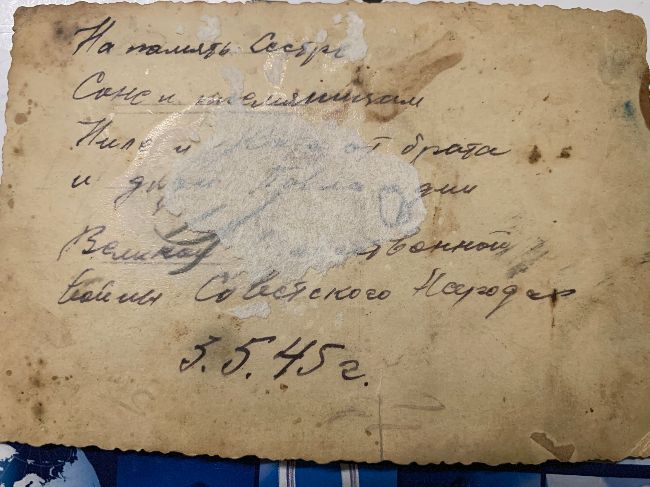 На память Сестре
Соне и племяницам
Ниле и от брата
и дяди Павла дни
Великой
войны Советского Народа
3.5.45 г.